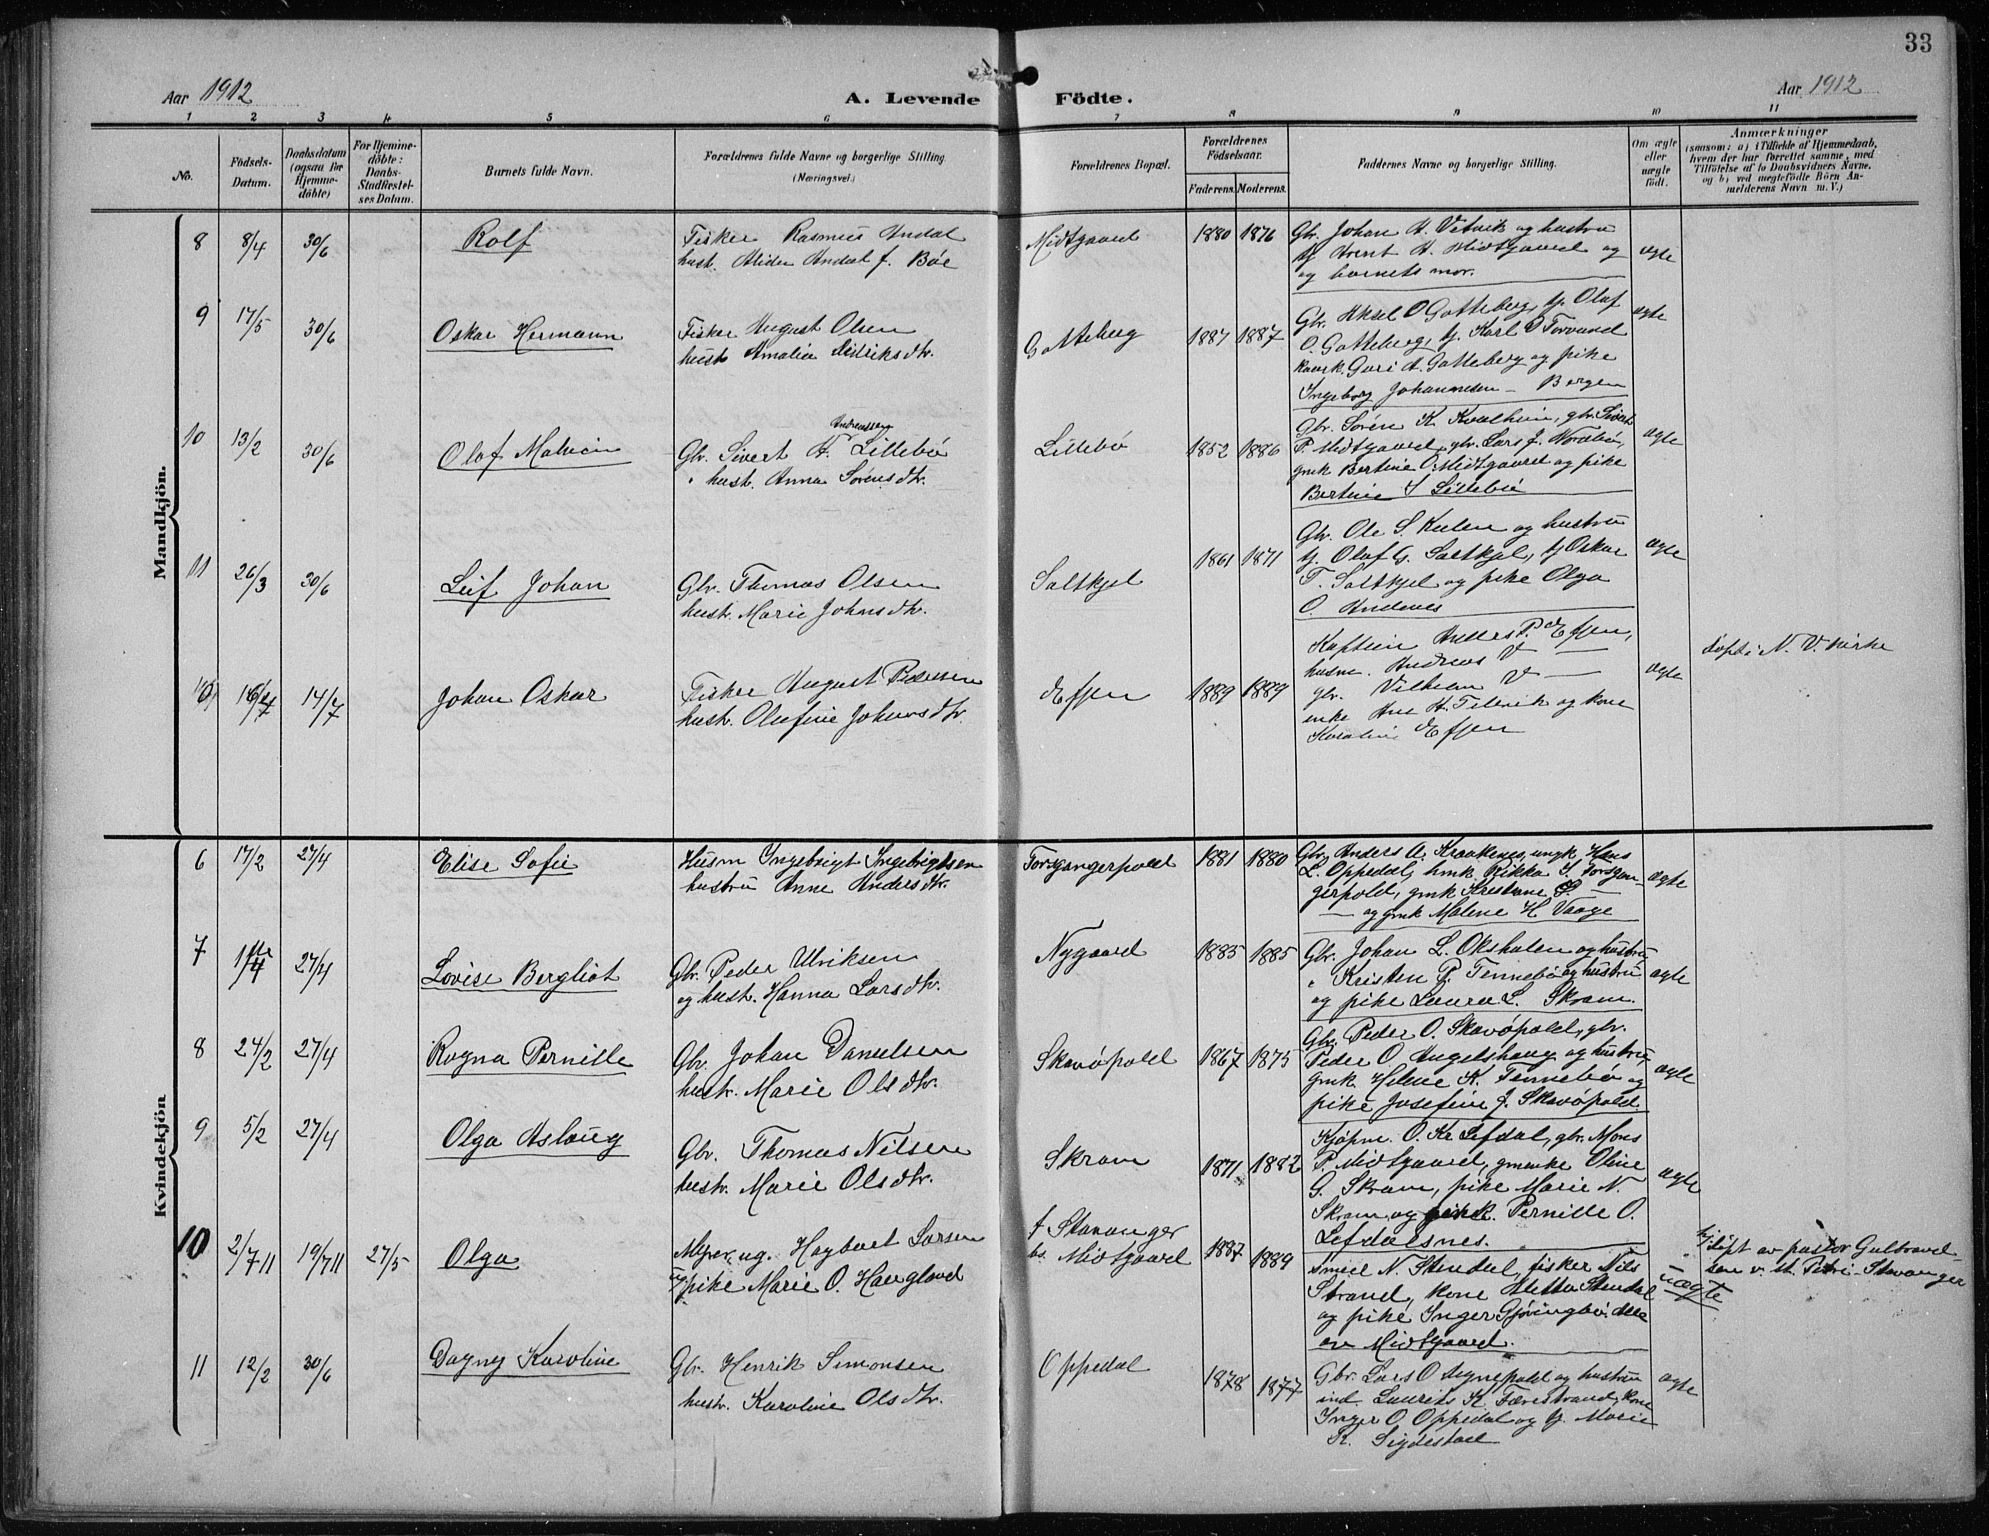 33
Aar 1912
A. Levende Födte.
Aar 1912
1 2 3 4 5 6 7 8 9 10 11
No.
Födsels-
Datum.
Daabsdatum
(ogsaa for
Hjemme-
døbte)
For Hjemme-
døbte:
Daabs-
Stadfæstel-
ses Datum.
Barnets fulde Navn.
Forældrenes fulde Navne og borgerlige Stilling.
(Næringsvei.)
Forældrenes Bopæl.
Forældrenes
Födselsaar.
Faderens. Moderens.
Faddernes Navne og borgerlige Stilling.
Om ægte
eller
uægte
født.
Anmærkninger
(saasom: a) i Tilfælde af Hjemmedaab,
hvem der har forrettet samme, med
Tilføielse af to Daabsvidners Navne,
og b) ved uægtefödte Börn An-
melderens Navn m. V.)
Mandkjön.
8 8/4 30/6 Rolf
Fisker Rasmus Andal
hust. Alida Andal f. Böe
Midtgaard 1880 1876
Gbr. Johan A. Vetvik og hustru
tj Arent A. Midtgaard og
og barnets mor.
ægte
9 17/5 30/6 Oskar Hermann
Fisker August Olsen
hust. Amalia Didriksdtr.
Gotteberg 1887 1887
Gbr. Aksel O Gotteberg, tj. Olaf
O. Gotteberg, tj. Karl O Torvund
kaark. Guri A. Gotteberg og pike
Ingeborg Johannesen – Bergen
ægte
10 13/2 30/6 Olaf Malvin
Andreassen
Gbr. Sivert A. Lillebö
" hust. Anna Sörensdtr.
Lillebö 1852 1886
Gbr. Sören K. Kvalheim, gbr. Sivert
P. Midtgaard, gbr. Lars J. Nordbö,
gmk Bertine O. Midtgaard og pike
Bertine S Lillebö
ægte
11 26/3 30/6 Leif Johan
Gbr. Thomas Olsen
hust. Marie Johnsdtr.
Saltkjel 1861 1871
Gbr. Ole S. Kulen og hustru
tj. Olaf G. Saltkjel, tj Oskar
T. Saltkjel og pike Olga
O. Andenes
ægte
14/7 Johan Oskar
Fisker August Pedersen
hust. Olufine Johnsdtr.
Elfjen 1889 1889
Kaptein Anders P. Elfjen,
husm. Andreas V —
gbr. Vilhelm V —
enke Ane A. Televik og kone
Elfjen
ægte
döpt i N. V. kirke
Kvindekjön
6 17/2 27/4 Elise Sofie
Husm Ingebrigt Ingebrigtsen
hustru Anne Andersdtr.
Torsgangerpold 1881 1880
Gbr. Anders A. Kraakenes, ungk. Hans
L. Oppedal, hmk. Rikka I. Torsgan-
gerpold, gmk Kristine S. —
— og gmk Malene H. Vaage
ægte
7 27/4 Lovise Bergliot
Gbr. Peder Ulriksen
og hust. Hanna Larsdtr.
Nygaard 1883 1885
Gbr. Johan L. Oksholen og hustru,
" Kristen P. Tennebö og hustru
og pike Laura L. Skram.
ægte
8 24/2 27/4 Ragna Pernille
Gbr. Johan Danielsen
hust. Marie Olsdtr.
Skavöpold 1867 1875
Gbr. Peder O. Skavöpold, gbr.
Peder O Angelshaug og hustru,
gmk. Helene K. Tennebö og
pike Josefine J. Skavöpold.
ægte
9 5/2 27/4 Olga Aslaug
Gbr. Thomas Nilsen
hust. Marie Olsdtr.
Skram 1871 1882
Kjøpm. O. Kr Lefdal, gbr. Mons
P. Midtgaard, gmenke Oline
G. Skram, pike Marie N.
Skram og Pernille O.
Lefdalsnes.
ægte
10 2/7 11 19/7 11 27/5 Olga
ug. Hagbart Larsen
og pike Marie O. Haugland
f Stavanger
bs. Midtgaard 1887 1889
Smed N. Stendal, fisker Nils
Strand, kone Aletta Stendal
og pike Inger Gjöringbö. alle
av Midtgaard.
uægte
hj.döpt av pastor Gulbrand-
sen v. St. Petri – Stavanger
11 12/2 30/6 Dagny Karoline
Gbr. Henrik Simonsen
hust. Karoline Olsdtr.
Oppedal 1878 1877
Gbr. Lars O Degnepold og hustru
ind. Laurits K. Færestrand, kone
Inger O. Oppedal og tj. Marie
K. Sigdestad
ægte